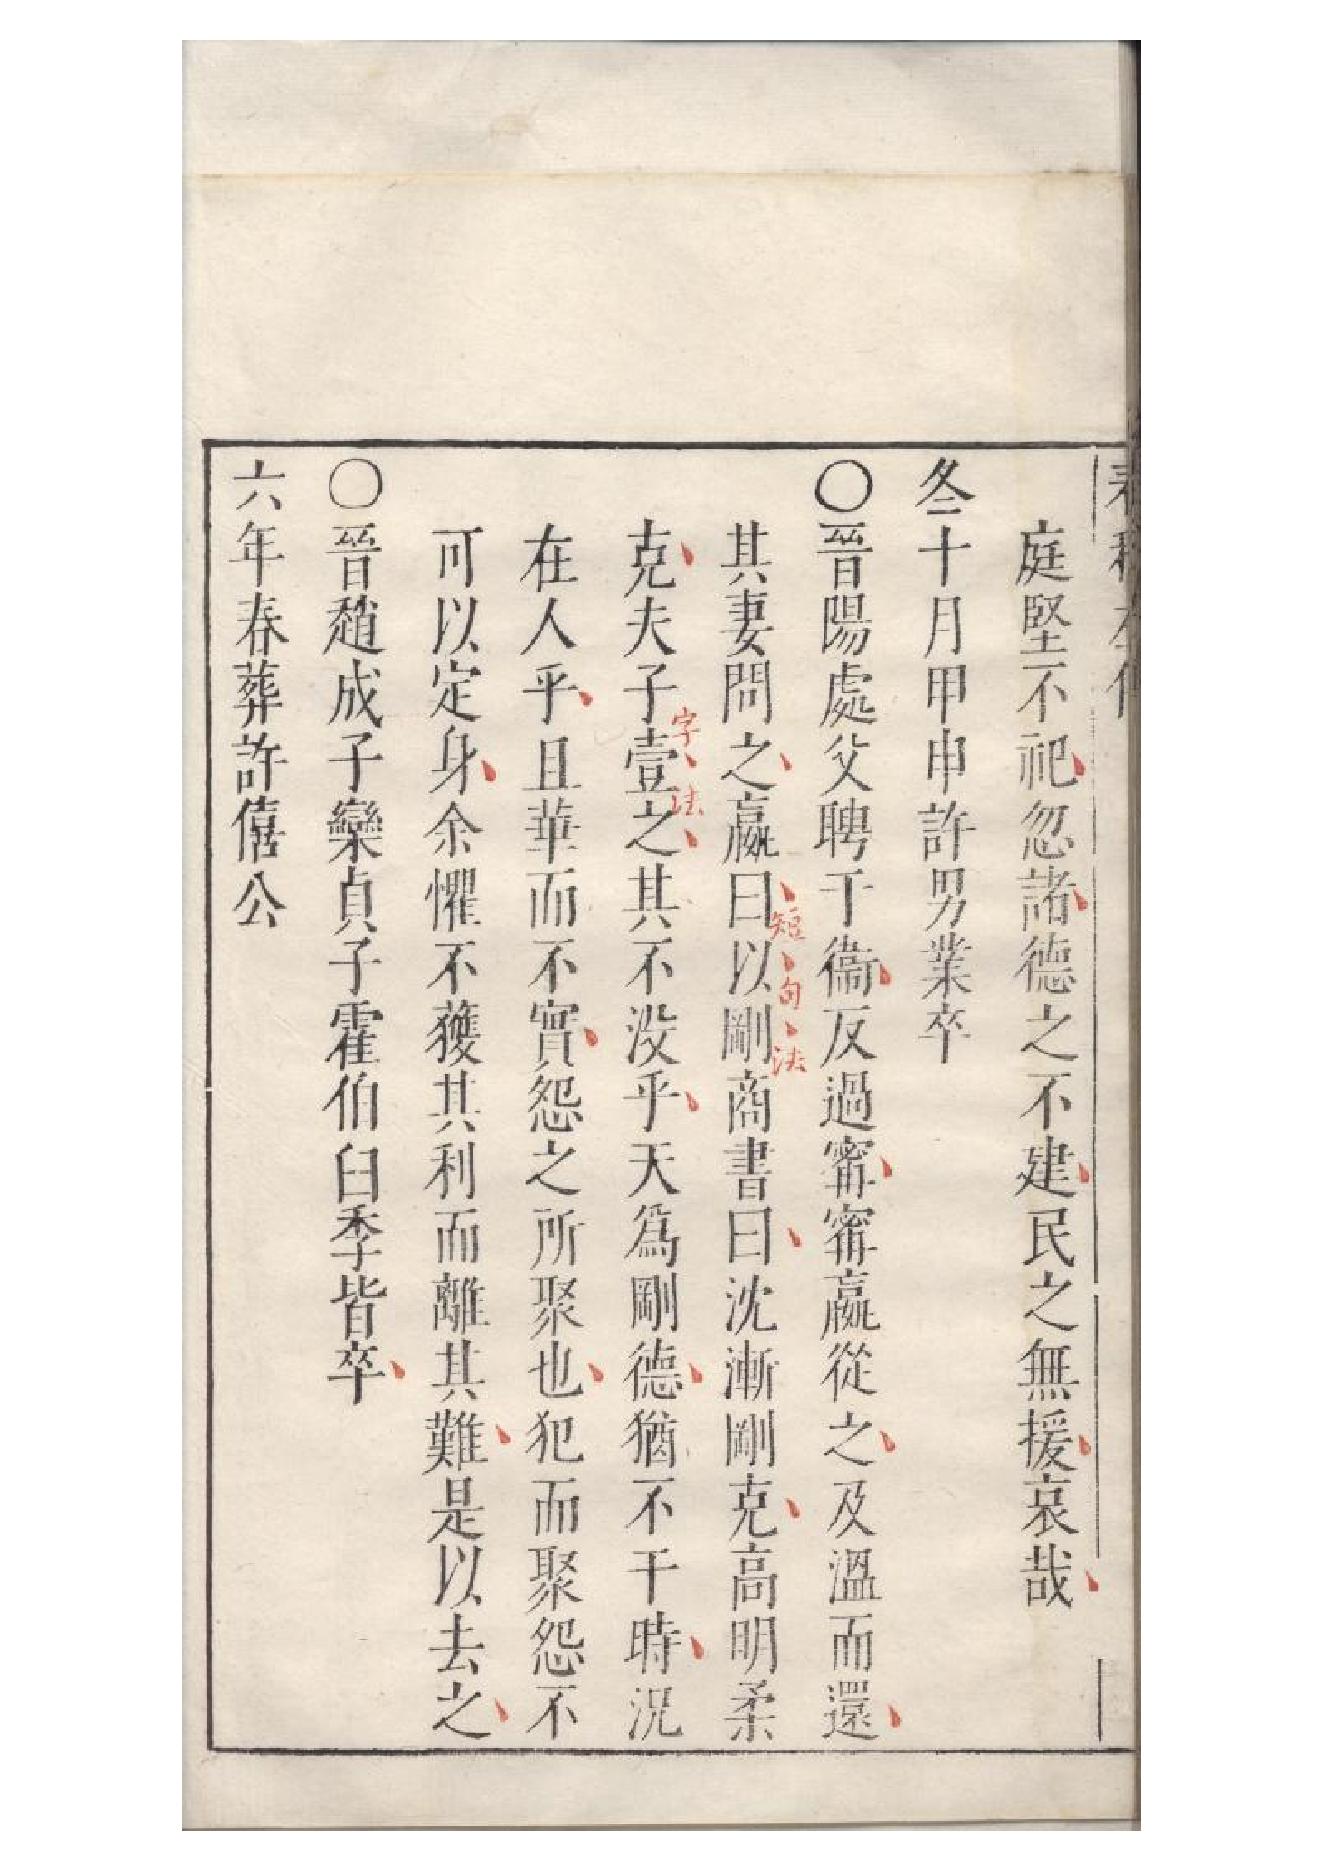 春秋左傳
庭堅不祀忽諸德之不建民之無援哀哉
冬十月甲申許男業卒
〇晉陽處父聘于衞反過甯甯嬴從之及溫而還
其妻問之嬴曰以剛商書曰沈漸剛克高明柔
短句法
克夫子壹之其不没乎天爲剛德猶不干時況
字法
在人乎且華而不實怨之所聚也犯而聚怨不
可以定身余懼不獲其利而離其難是以去之
〇晉趙成子欒貞子霍伯臼季皆卒
六年春葬許僖公